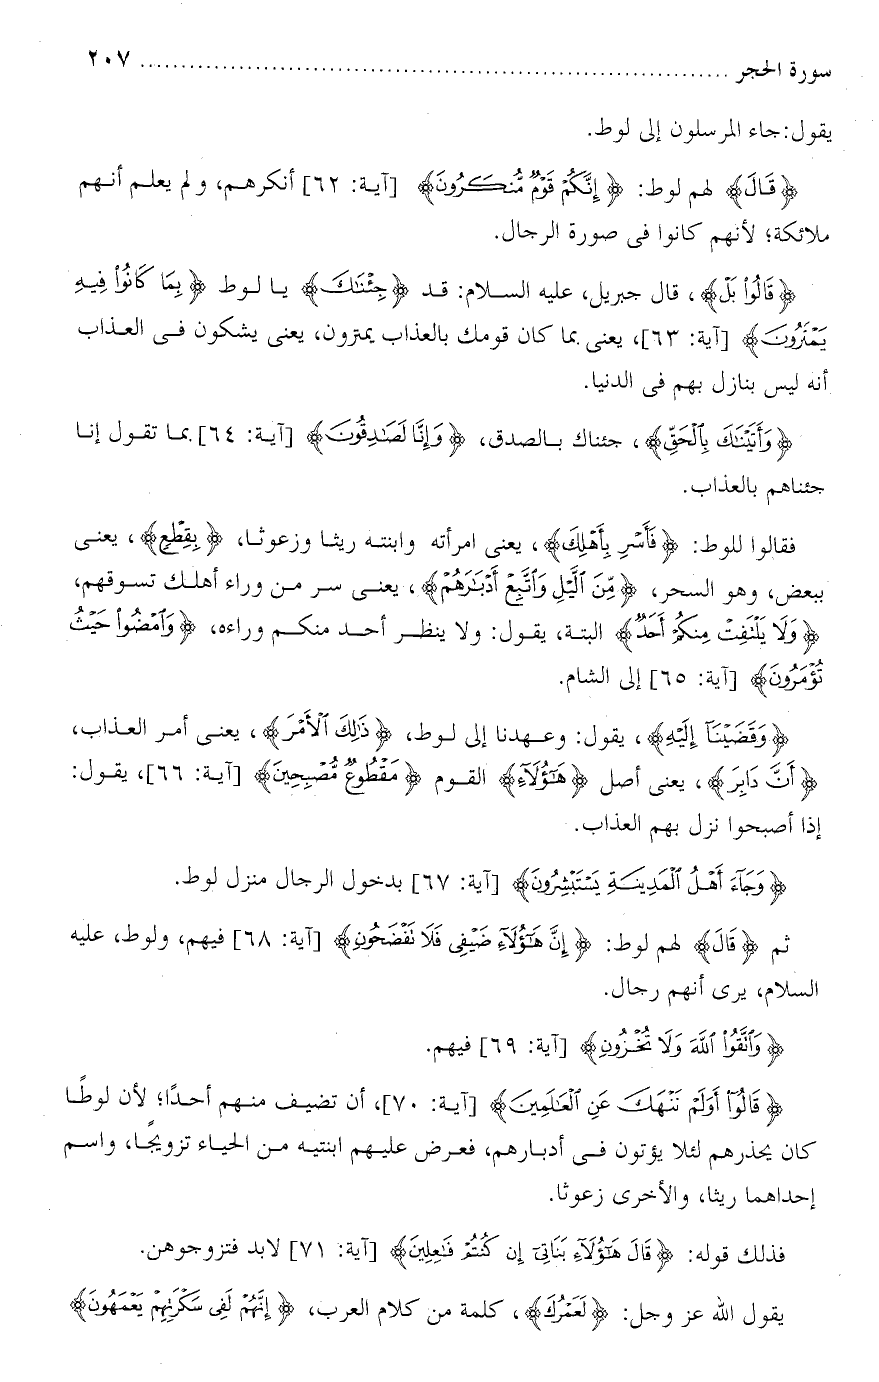 سورة الحجر ........................................................................ ٢٠٧
يقول: جاء المرسلون إلى لوط.
﴿قَالَ﴾ لهم لوط: ﴿إِنَّكُمْ قَوْمٌ مُّنكَرُونَ﴾ [آية: ٦٢] أنكرهم، ولم يعلم أنهم
ملائكة؛ لأنهم كانوا فى صورة الرجال.
﴿قَالُوا۟ بَلْ﴾، قال جبريل، عليه السلام: قد ﴿جِئْنَٰكَ﴾ يا لوط ﴿بِمَا كَانُوا۟ فِيهِ
يَمْتَرُونَ﴾ [آية: ٦٣]، يعنى بما كان قومك بالعذاب يمترون، يعنى يشكون فى العذاب
أنه ليس بنازل بهم فى الدنيا.
﴿وَأَتَيْنَٰكَ بِٱلْحَقِّ﴾، جئناك بالصدق، ﴿وَإِنَّا لَصَٰدِقُونَ﴾ [آية: ٦٤] بما تقول إنا
جئناهم بالعذاب.
فقالوا للوط: ﴿فَأَسْرِ بِأَهْلِكَ﴾، يعنى امرأته وابنته ريثا وزعوثا، ﴿بِقِطْعٍ﴾، يعنى
ببعض، وهو السحر، ﴿مِّنَ ٱلَّيْلِ وَٱتَّبِعْ أَدْبَٰرَهُمْ﴾، يعنى سر من وراء أهلك تسوقهم،
﴿وَلَا يَلْتَفِتْ مِنكُمْ أَحَدٌ﴾ البتة، يقول: ولا ينظر أحد منكم وراءه، ﴿وَٱمْضُوا۟ حَيْثُ
تُؤْمَرُونَ﴾ [آية: ٦٥] إلى الشام.
﴿وَقَضَيْنَآ إِلَيْهِ﴾، يقول: وعهدنا إلى لوط، ﴿ذَٰلِكَ ٱلْأَمْرَ﴾، يعنى أمر العذاب،
﴿أَنَّ دَابِرَ﴾، يعنى أصل ﴿هَٰٓؤُلَآءِ﴾ القوم ﴿مَقْطُوعٌ مُّصْبِحِينَ﴾ [آية: ٦٦]، يقول:
إذا أصبحوا نزل بهم العذاب.
﴿وَجَآءَ أَهْلُ ٱلْمَدِينَةِ يَسْتَبْشِرُونَ﴾ [آية: ٦٧] بدخول الرجال منزل لوط.
ثم ﴿قَالَ﴾ لهم لوط: ﴿إِنَّ هَٰٓؤُلَآءِ ضَيْفِى فَلَا تَفْضَحُونِ﴾ [آية: ٦٨] فيهم، ولوط، عليه
السلام، يرى أنهم رجال.
﴿وَٱتَّقُوا۟ ٱللَّهَ وَلَا تُخْزُونِ﴾ [آية: ٦٩] فيهم.
﴿قَالُوٓا۟ أَوَلَمْ نَنْهَكَ عَنِ ٱلْعَٰلَمِينَ﴾ [آية: ٧٠]، أن تضيف منهم أحدًا؛ لأن لوطًا
كان يحذرهم لئلا يؤتون فى أدبارهم، فعرض عليهم ابنتيه من الحياء تزويجًا، واسم
إحداهما ريثا، والأخرى زعوثا.
فذلك قوله: ﴿قَالَ هَٰٓؤُلَآءِ بَنَاتِىٓ إِن كُنتُمْ فَٰعِلِينَ﴾ [آية: ٧١] لابد فتزوجوهن.
يقول الله عز وجل: ﴿لَعَمْرُكَ﴾، كلمة من كلام العرب، ﴿إِنَّهُمْ لَفِى سَكْرَتِهِمْ يَعْمَهُونَ﴾